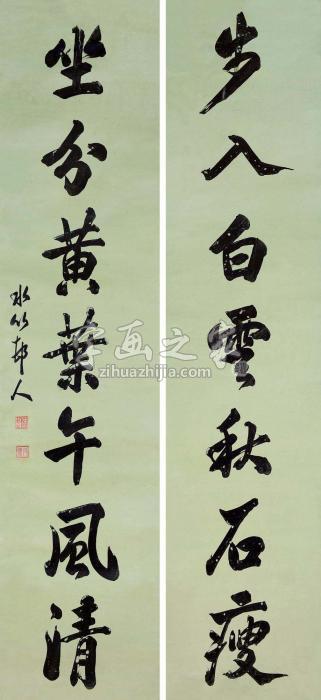 步入白雲秋石瘦
坐分黃葉午風清
水竹邨人
字画之家
zihuazhijia.com